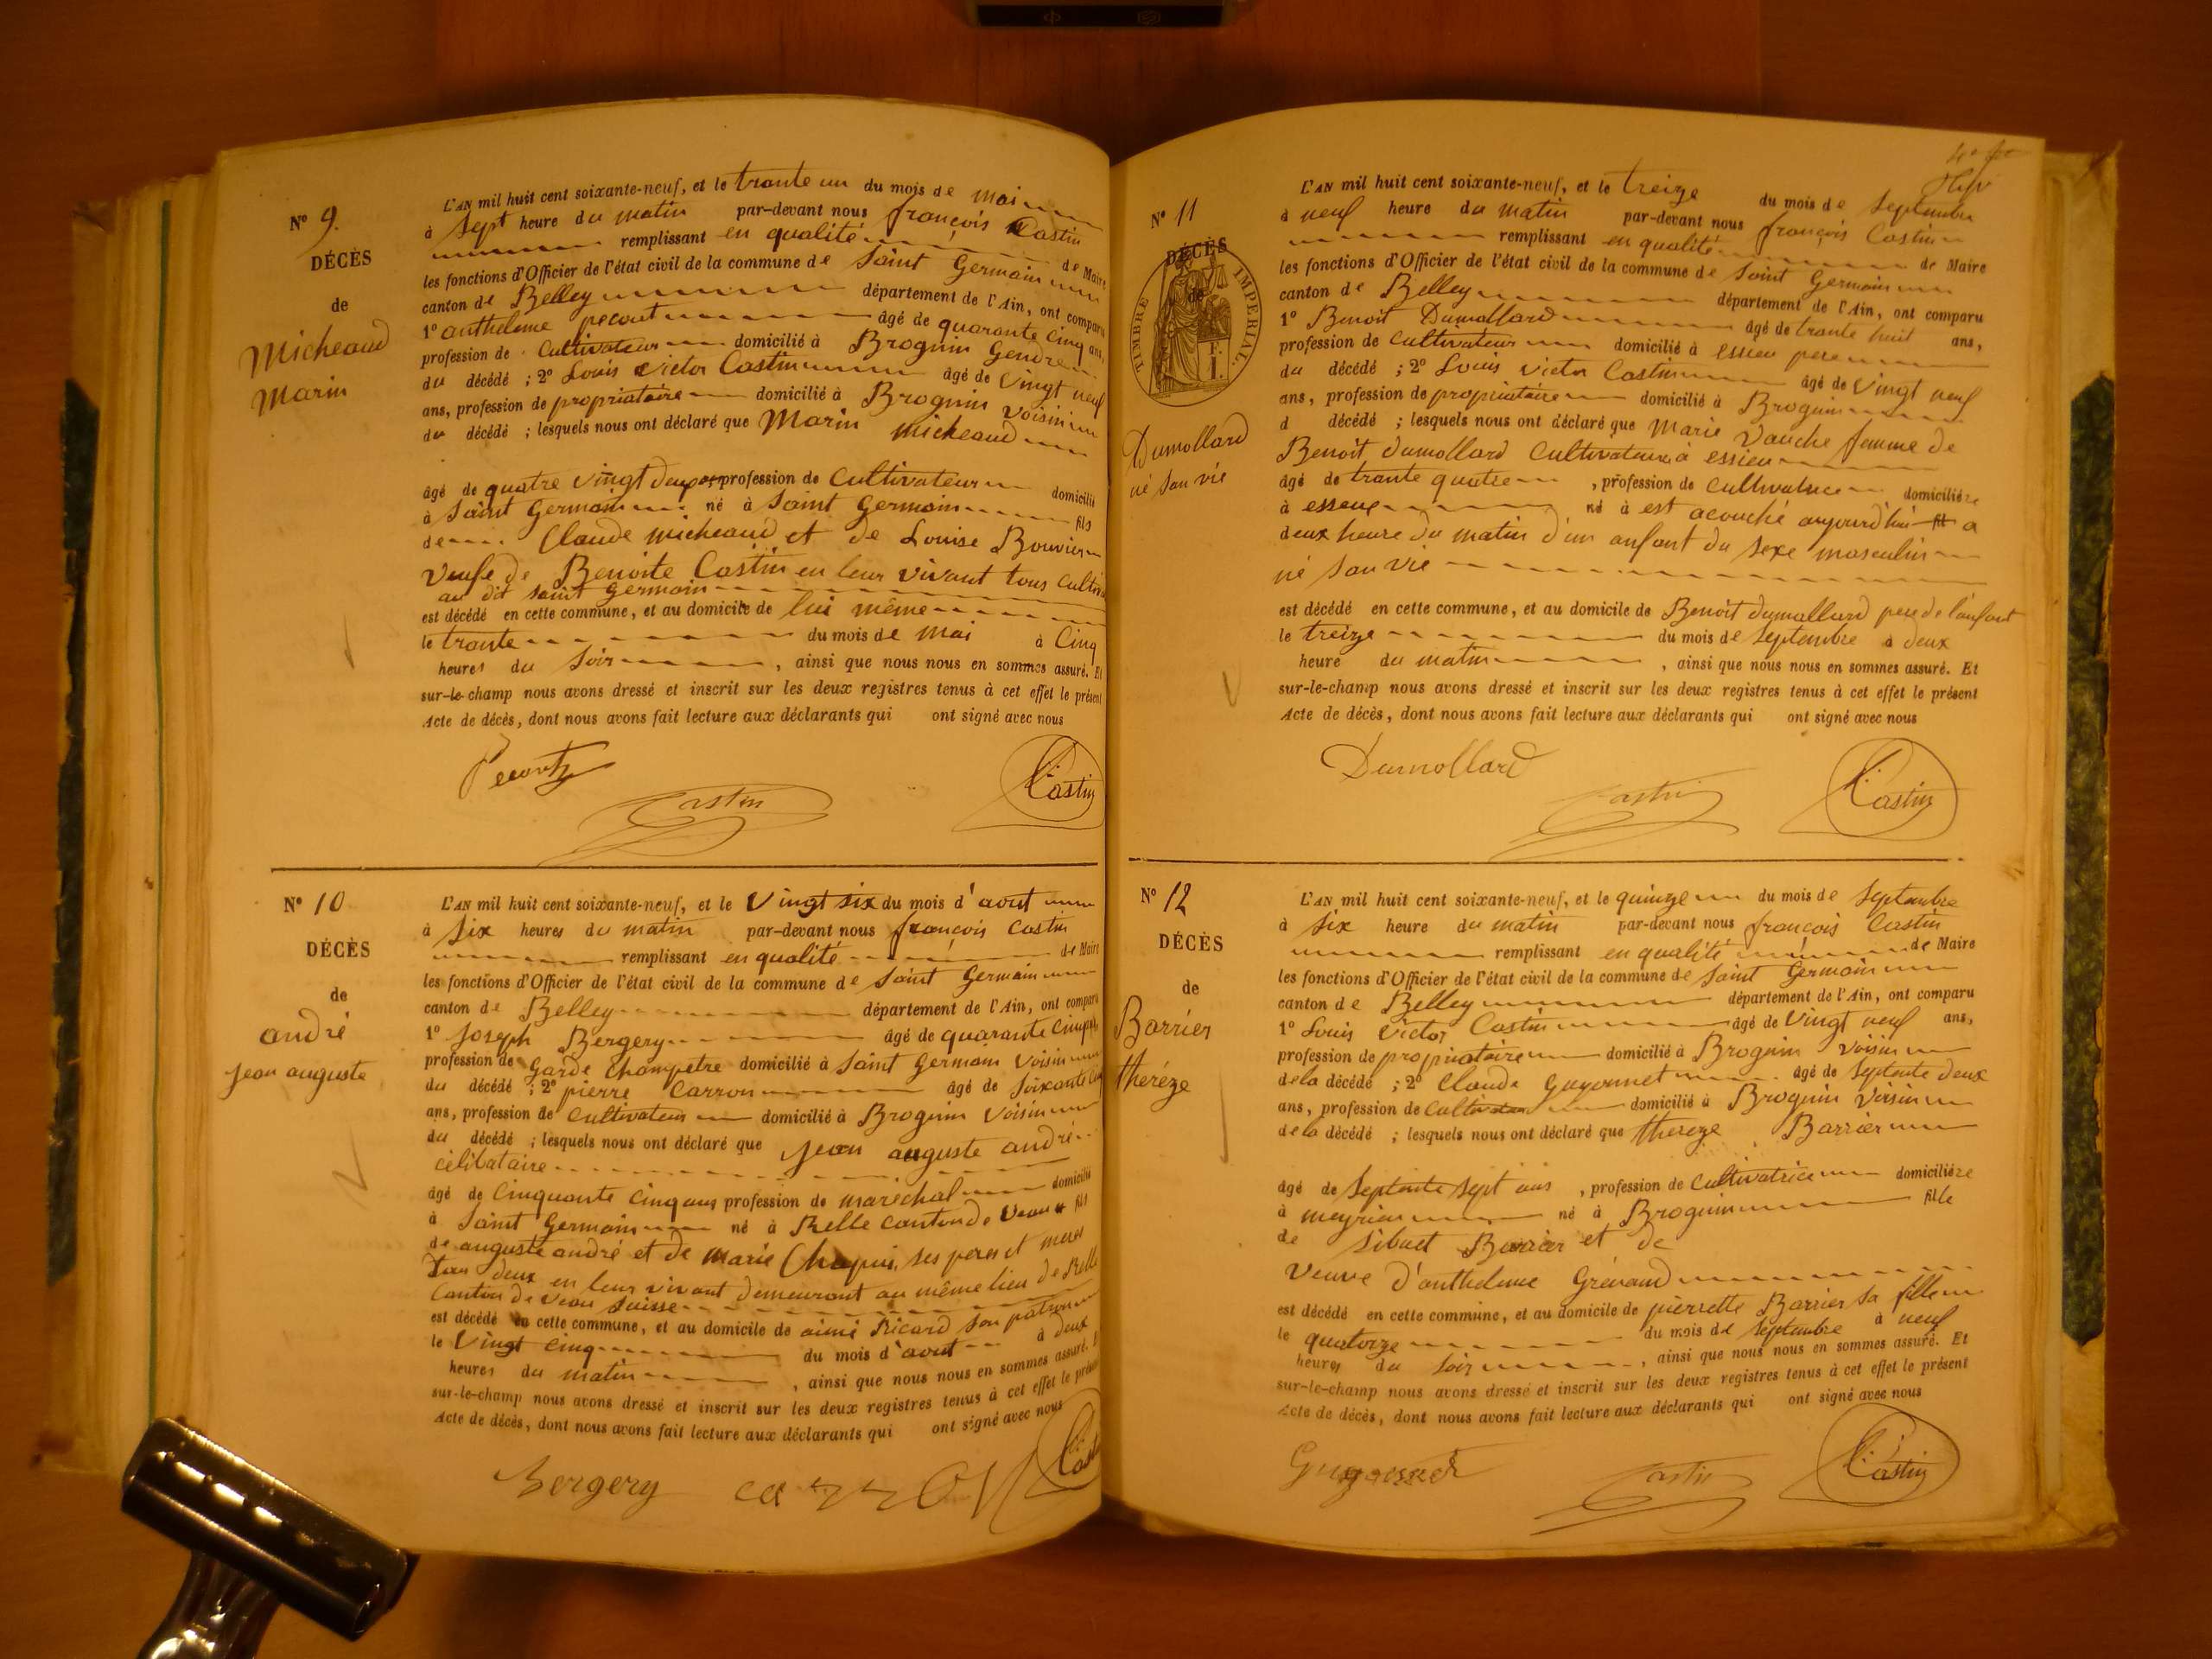 N° 9.
DÉCÈS
de
Micheaud
Marin
L'AN mil huit cent soixante-neuf, et le trante un du mois de mai
à sept heure du matin par-devant nous françois Castin
remplissant en qualité de Maire
les fonctions d'Officier de l'état civil de la commune de Saint Germain
canton de Belley département de l'Ain, ont comparu
1° anthelme pecout âgé de quarante cinq ans,
profession de Cultivateur domicilié à Brognin Gendre
du décédé ; 2° Louis Victor Castin âgé de vingt neuf
ans, profession de propriatáire domicilié à Brognin voisin
du décédé ; lesquels nous ont déclaré que Marin Micheaud
âgé de quatre vingt deux profession de Cultivateur domicilié
à Saint Germain né à Saint Germain fils
de Claude Micheaud et de Louise Bouvier
veufe de Benoite Castin en leur vivant tous Cultiv
au dit Saint Germain
est décédé en cette commune, et au domicile de lui même
le trante du mois de mai à Cinq
heures du Soir, ainsi que nous nous en sommes assuré. Et
sur-le-champ nous avons dressé et inscrit sur les deux registres tenus à cet effet le présent
Acte de décès, dont nous avons fait lecture aux déclarants qui ont signé avec nous
Castin
Castin
N° 10
DÉCÈS
de
andré
jean auguste
L'AN mil huit cent soixante-neuf, et le Vingt six du mois d'aout
à six heures du matin par-devant nous françois Castin
remplissant en qualité de Maire
les fonctions d'Officier de l'état civil de la commune de Saint Germain
canton de Belley département de l'Ain, ont comparu
1° Joseph Bergery âgé de quarante cinq
profession de Garde Champetre domicilié à Saint Germain Voisin
du décédé ; 2° pierre Carron âgé de soixante
ans, profession de Cultivateur domicilié à Brognin Voisin
du décédé ; lesquels nous ont déclaré que jean auguste andré
célibataire
âgé de Cinquante Cinq ans profession de maréchal domicilié
à Saint Germain né à Belle canton de Veau fils
de auguste andré et de marie Chapuis ses peres et meres
tou deux en leur vivant demeurant au même lieu de Belle
Canton de Veau Suisse
est décédé en cette commune, et au domicile de aimé Ricard Son patron
le Vingt Cinq du mois d'aout à deux
heures du matin, ainsi que nous nous en sommes assuré. Et
sur-le-champ nous avons dressé et inscrit sur les deux registres tenus à cet effet le présent
Acte de décès, dont nous avons fait lecture aux déclarants qui ont signé avec nous
Bergery carron Castin
N° 11
DÉCÈS
de
TIMBRE IMPERIAL.
Dumollard
né san vie
L'AN mil huit cent soixante-neuf, et le treize du mois de Septembre
à neuf heure du matin par-devant nous françois Castin
remplissant en qualité de Maire
les fonctions d'Officier de l'état civil de la commune de Saint Germain
canton de Belley département de l'Ain, ont comparu
1° Benoit Dumollard âgé de trante huit ans,
profession de Cultivateur domicilié à essieu pere
du décédé ; 2° Louis victor Castin âgé de Vingt neuf
ans, profession de propriatáire domicilié à Brognin
d décédé ; lesquels nous ont déclaré que Marie Vauche femme de
Benoit dumollard Cultivateur à essieu
âgé de trante quatre, profession de Cultivatrice domiciliére
à essieu né à est acouché aujourd'hui fil a
deux heure du matin d'un anfant du sexe masculin
né san vie
est décédé en cette commune, et au domicile de Benoit dumollard pere de l'anfant
le treize du mois de Septembre à deux
heure du matin, ainsi que nous nous en sommes assuré. Et
sur-le-champ nous avons dressé et inscrit sur les deux registres tenus à cet effet le présent
Acte de décès, dont nous avons fait lecture aux déclarants qui ont signé avec nous
Dumollard
Castin
Castin
N° 12
DÉCÈS
de
Barrier
theréze
L'AN mil huit cent soixante-neuf, et le quinze du mois de Septembre
à six heure du matin par-devant nous françois Castin
remplissant en qualité de Maire
les fonctions d'Officier de l'état civil de la commune de Saint Germain
canton de Belley département de l'Ain, ont comparu
1° Louis Victor Castin âgé de Vingt neuf ans,
profession de propriatáire domicilié à Brognin Voisin
de la décédé ; 2° Claude Guyonnet âgé de Septente deux
ans, profession de Cultivateur domicilié à Brognin Voisin
de la décédé ; lesquels nous ont déclaré que thereze Barrier
âgé de Septente sept ans, profession de Cultivatrice domiciliére
à meyrieu né à Brognin fille
de Sibuet Barrier et de
Veuve d'anthelme Grénaud
est décédé en cette commune, et au domicile de pierrette Barrier sa fille
le quatorze du mois de Septembre à neuf
heures du soir, ainsi que nous nous en sommes assuré. Et
sur-le-champ nous avons dressé et inscrit sur les deux registres tenus à cet effet le présent
Acte de décès, dont nous avons fait lecture aux déclarants qui ont signé avec nous
Guyonnet
Castin
Castin